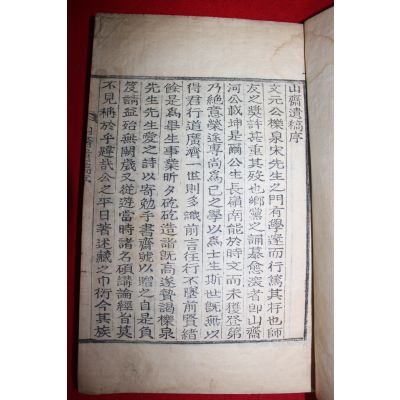 山齋遺稿序
文元公櫟泉宋先生之門有學邃而行篤其存也師
友之奬許甚重其歿也鄕黨之誦慕愈深者卽山齋
河公載坤是爾公生長嶺南能於時文而未獲登第
乃絶意榮達專尙爲己之學以爲士生斯世旣無以
得君行道廣濟一世則多識前言往行不墜前賢緖
餘是爲畢生事業昕夕矻矻造詣旣高遂贄謁櫟泉
先生先生愛之詩以寄勉手書齋號以贈之自是負
笈請益殆無闕歲又從遊當時諸名碩講論經旨莫
不見稱於乎韙哉公之平日著述藏之巾衍今其族